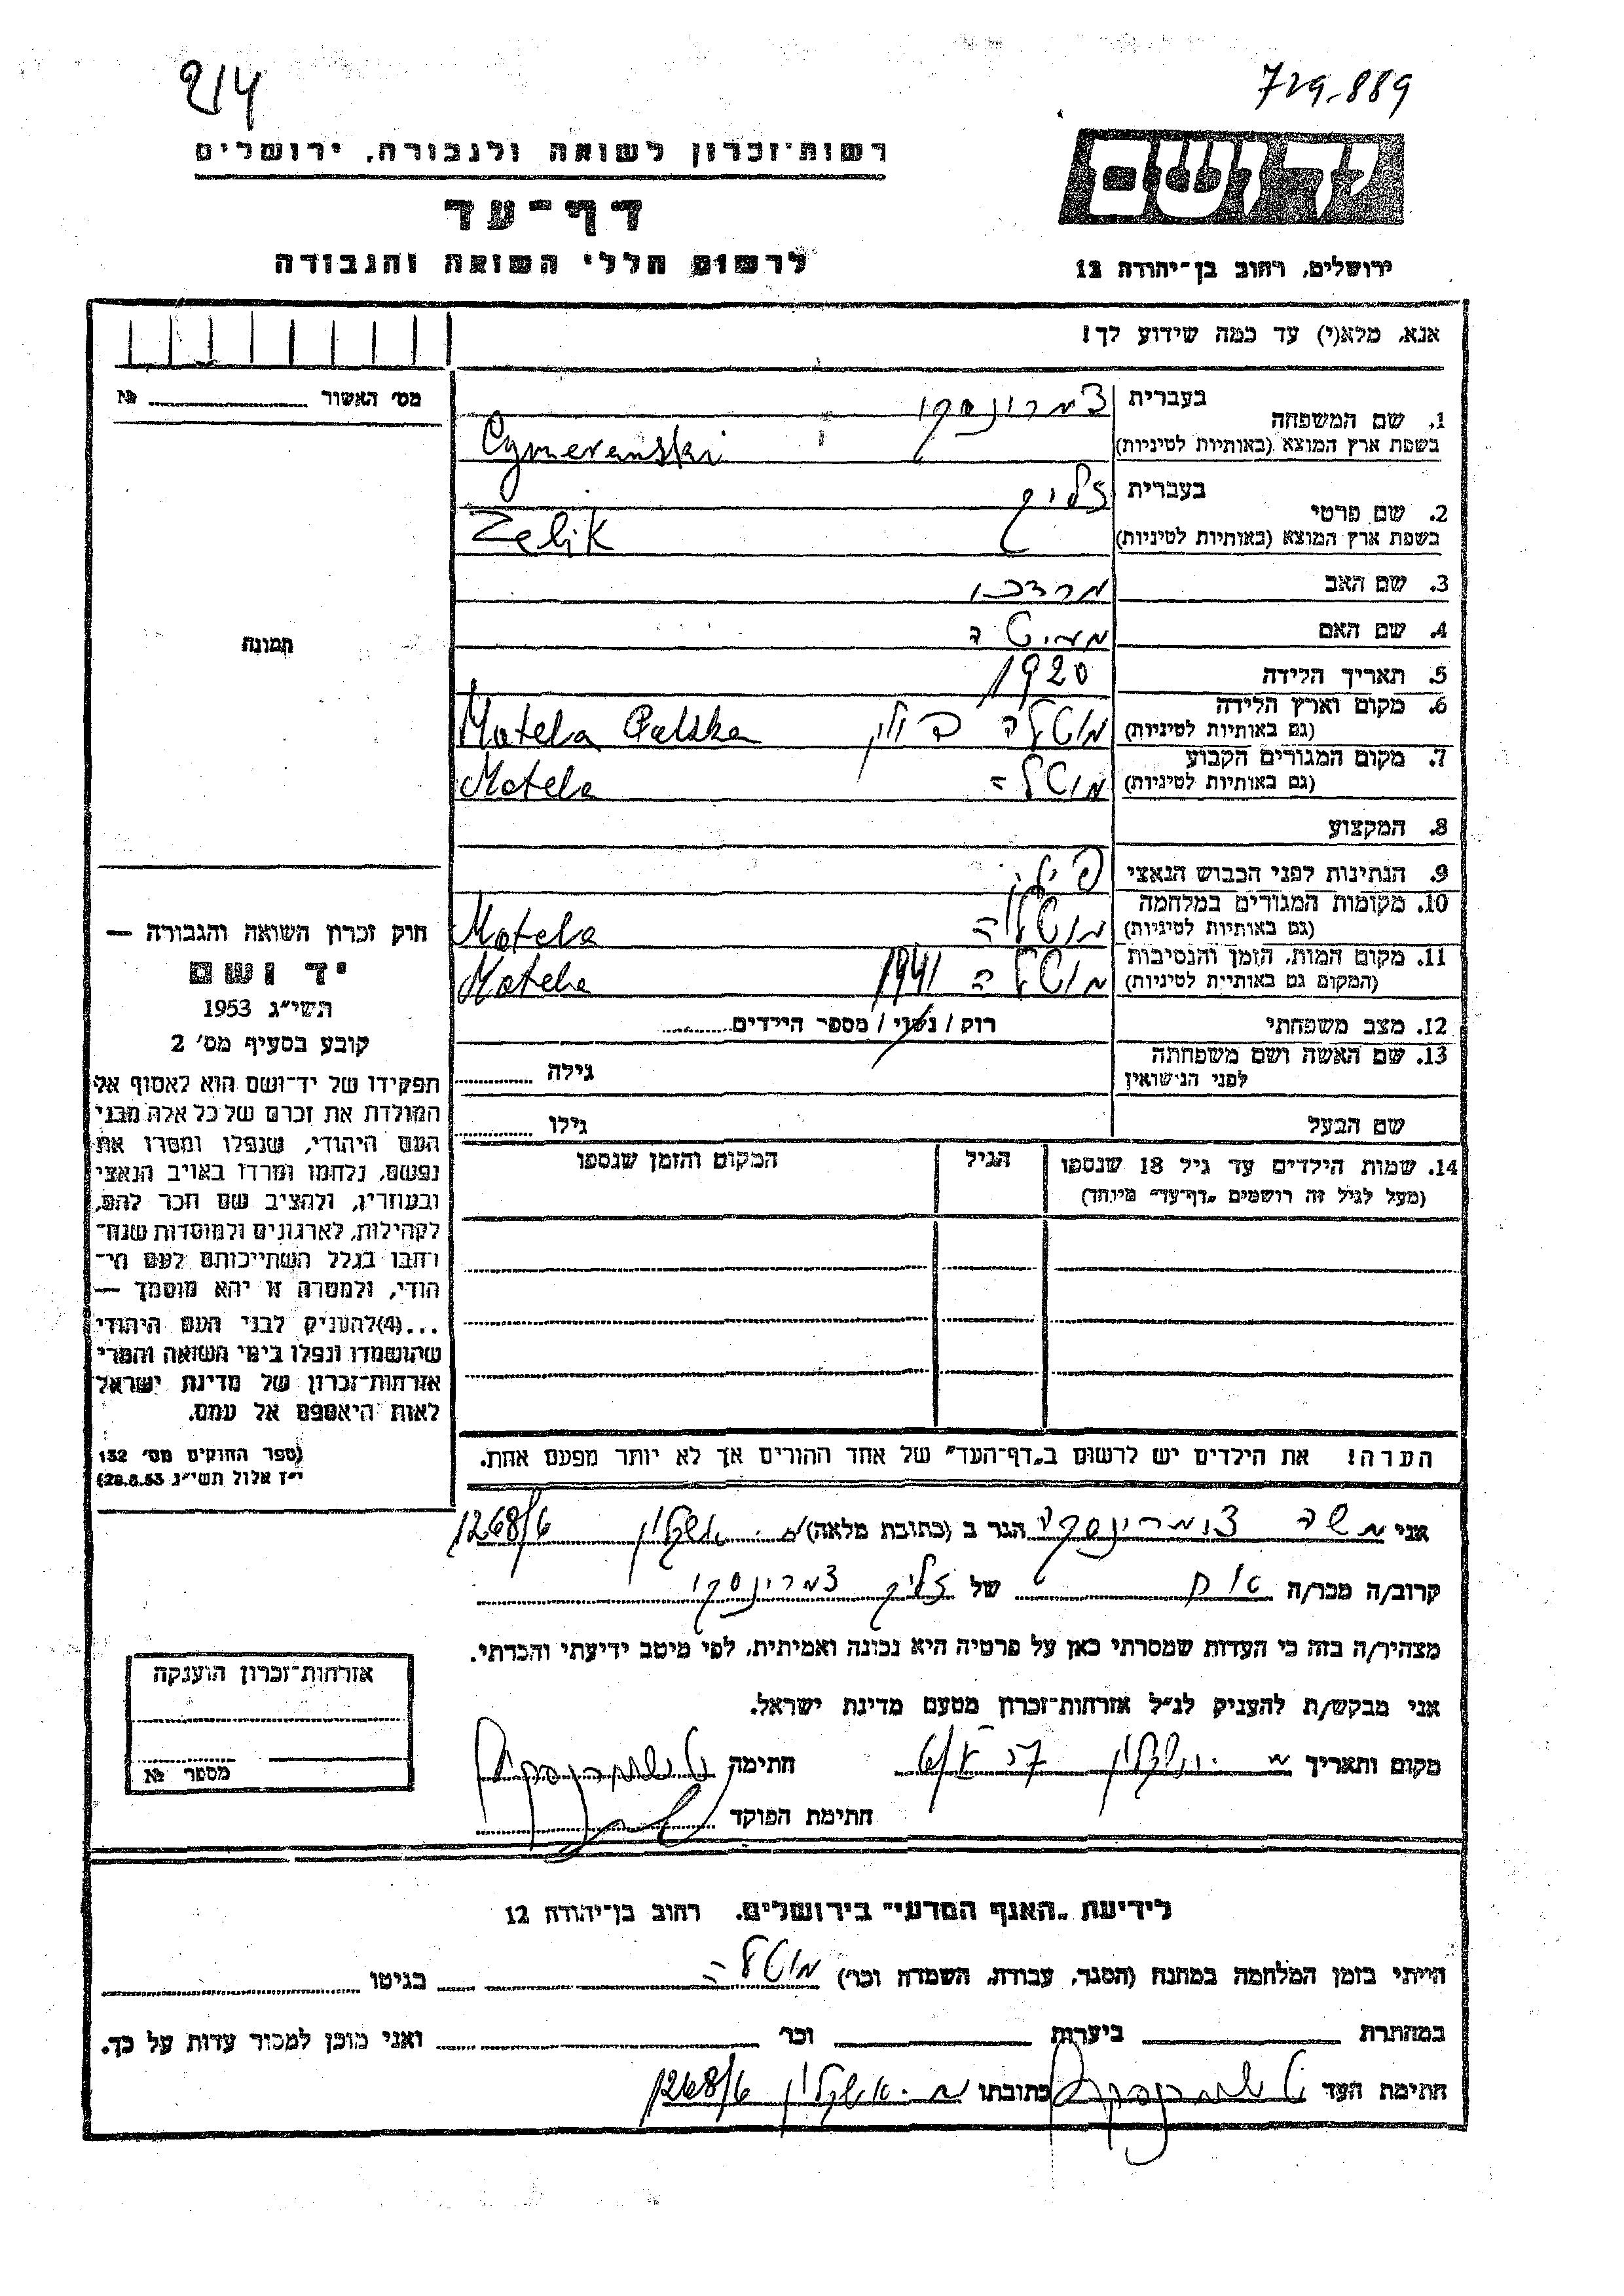 214
729-889
רשות־זכרון לשואה ולגבורה, ירושלים
יד ושם
דף־עד
לרשום חללי השואה והגבורה
ירושלים, רחוב בן־יהודה 12
אנא, מלא(י) עד כמה שידוע לך!
מס׳ האשור № 
1. שם המשפחה בעברית צמרינסקי
בשפת ארץ המוצא (באותיות לטיניות) Cymerenski
2. שם פרטי בעברית זליק
בשפת ארץ המוצא (באותיות לטיניות) Zelik
3. שם האב מרדכי
4. שם האם
תמונה
5. תאריך הלידה 1920
6. מקום וארץ הלידה (גם באותיות לטיניות) מוטלה פולין Motela Polska
7. מקום המגורים הקבוע (גם באותיות לטיניות) מוטלה Motela
8. המקצוע
9. הנתינות לפני הכבוש הנאצי
10. מקומות המגורים במלחמה (גם באותיות לטיניות) מוטלה Motela
11. מקום המות, הזמן והנסיבות (המקום גם באותיות לטיניות) מוטלה 1941 Motela
12. מצב משפחתי רוק / נשוי / מספר הילדים
13. שם האשה ושם משפחתה לפני הנישואין גילה
שם הבעל גילו
14. שמות הילדים עד גיל 18 שנספו הגיל המקום והזמן שנספו
(מעל לגיל זה רושמים „דף־עד״ מיוחד)
חוק זכרון השואה והגבורה —
יד ושם
תשי״ג 1953
קובע בסעיף מס׳ 2
תפקידו של יד־ושם הוא לאסוף אל
המולדת את זכרם של כל אלה מבני
העם היהודי, שנפלו ומסרו את
נפשם, נלחמו ומרדו באויב הנאצי
ובעוזריו, ולהציב שם וזכר להם,
לקהילות, לארגונים ולמוסדות שנח־
רבו בגלל השתייכותם לעם הי־
הודי, ולמטרה זו יהא מוסמך —
...(4)להעניק לבני העם היהודי
שהושמדו ונפלו בימי השואה והמרי
אזרחות־זכרון של מדינת ישראל
לאות היאספם אל עמם.
(ספר החוקים מס׳ 132
י״ז אלול תשי״ג 28.8.53)
הערה! את הילדים יש לרשום ב„דף־העד״ של אחד ההורים אך לא יותר מפעם אחת.
אני משה צומרינסקי הגר ב (כתובת מלאה) אשקלון 1268/6
קרוב/ה מכר/ה אח של זליק צמרינסקי
מצהיר/ה בזה כי העדות שמסרתי כאן על פרטיה היא נכונה ואמיתית, לפי מיטב ידיעתי והכרתי.
אני מבקש/ת להעניק לנ״ל אזרחות־זכרון מטעם מדינת ישראל.
מקום ותאריך חתימה
חתימת הפוקד
אזרחות־זכרון הוענקה
מספר №
לידיעת „האגף המדעי״ בירושלים, רחוב בן־יהודה 12
הייתי בזמן המלחמה במחנה (הסגר, עבודת, השמדה וכו׳) מוטלה בגיטו
במחתרת ביערות וכו׳ ואני מוכן למסור עדות על כך.
חתימת העד כתובתו אשקלון 1268/6